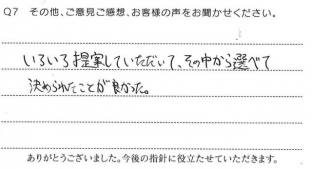 Q7 その他、ご意見ご感想、お客様の声をお聞かせください。
いろいろ提案していただいて、その中から選べて
決められたことが良かった。
ありがとうございました。今後の指針に役立たせていただきます。